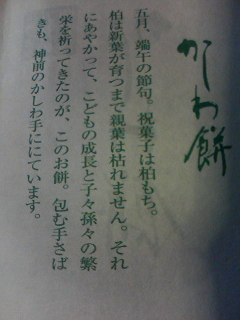 かしわ餅
五月、端午の節句。祝菓子は柏もち。
柏は新葉が育つまで親葉は枯れません。それ
にあやかって、こどもの成長と子々孫々の繁
栄を祈ってきたのが、このお餅。包む手さば
きも、神前のかしわ手ににています。